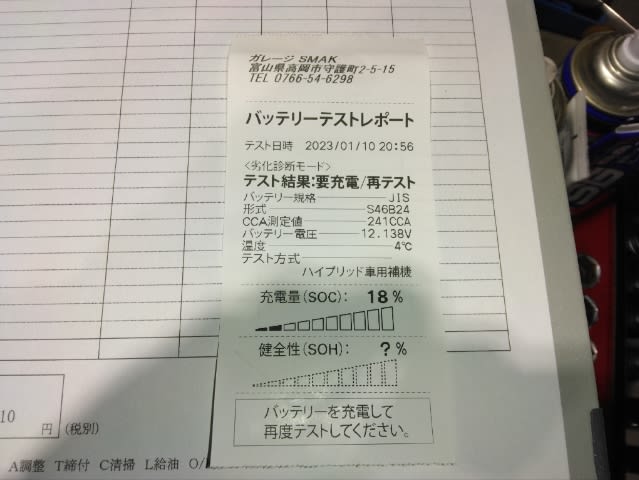 ガレージ SMAK
富山県高岡市守護町2-5-15
TEL 0766-54-6298
バッテリーテストレポート
テスト日時 2023/01/10 20:56
<劣化診断モード>
テスト結果:要充電/再テスト
バッテリー規格 JIS
形式 S46B24
CCA測定値 241CCA
バッテリー電圧 12.138V
温度 4℃
テスト方式
ハイブリッド車用補機
充電量(SOC): 18%
健全性(SOH): ?%
バッテリーを充電して
再度テストしてください。
10
円 (税別)
A調整 T締付 C清掃 L給油 O/